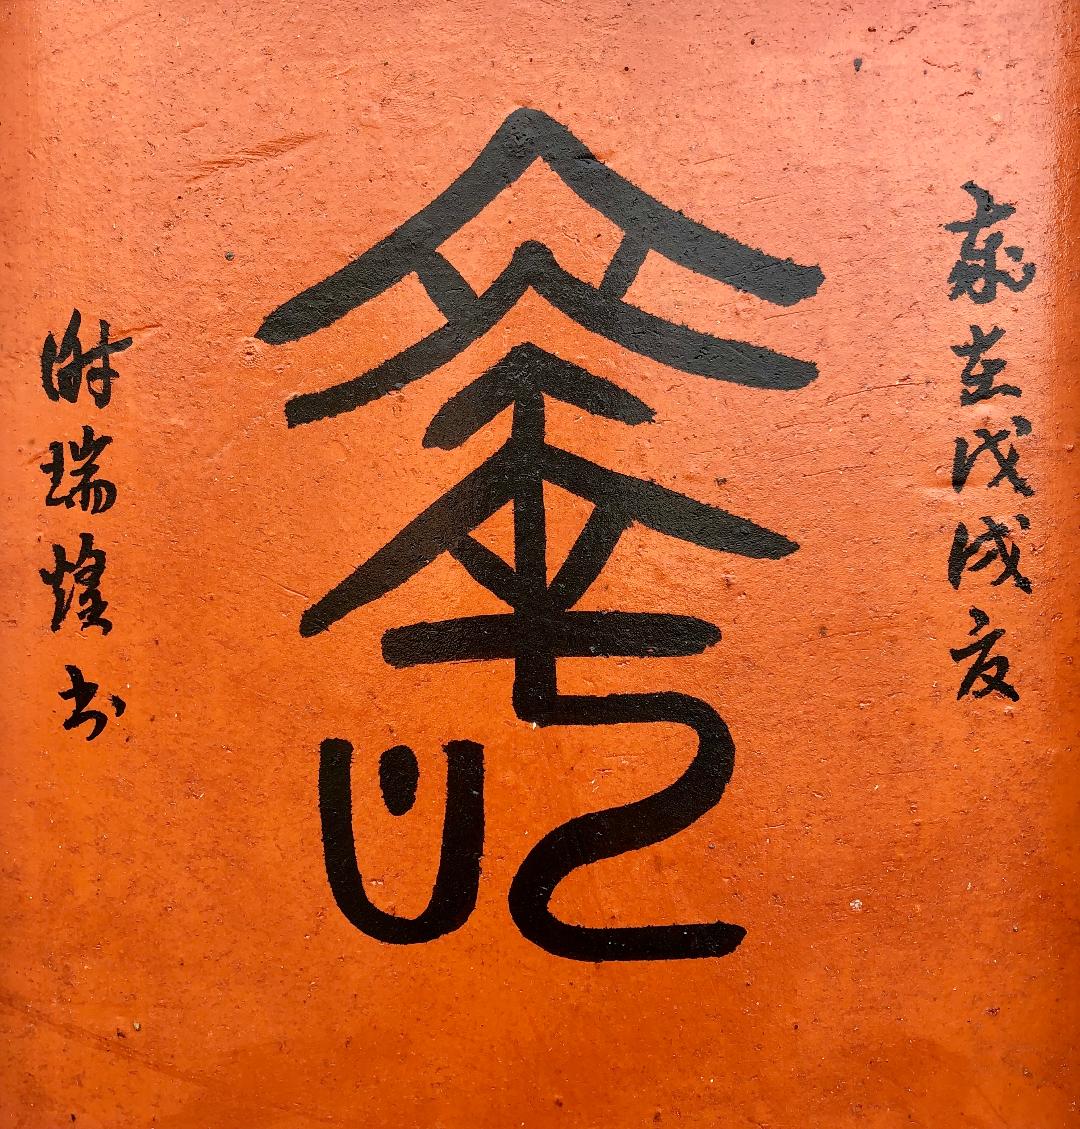 歲在戊戌夏
謝瑞煌书